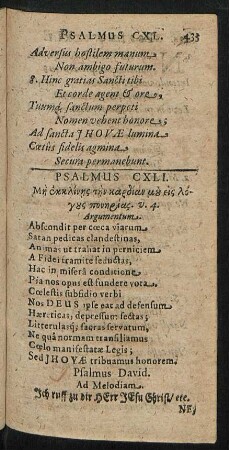 PSALMUS CXL. 433
Adversus hostilem manum
Non ambigo futurum.
8. Hinc gratias Sancti tibi
Et corde agent & ore,
Tuumq́ sanctum perpeti
Nomen vehent honore;
Ad sancta JHOVÆ lumina
Cœtûs fidelis agmina
Secura permanebunt.
PSALMUS CXLI.
Μὴ ἐκκλίνῃς τὴν καρδίαν μου εἰς λό-
γους πονηρίας. v. 4.
Argumentum.
Abscondit per cœca viarum
Satan pedicas clandestinas,
Animas ut trahat in perniciem
A Fidei tramite seductas,
Hac in miserâ conditione
Pia nos opus est fundere vota.
Cœlestis subsidio verbi
Nos DEUS ipse eat ad defensum
Hæreticas; depressurꝰ sectas;
Litterulasq́; sacras servatum,
Ne quâ normam transiliamus
Cœlo manifestatæ Legis;
Sed JHOVÆ tribuamus honorem.
Psalmus David.
Ad Melodiam.
Ich ruff zu dir HErr JEsu Christ/ etc.
NE,